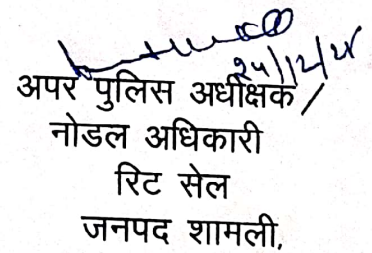 24/12/24
अपर पुलिस अधीक्षक /
नोडल अधिकारी
रिट सेल
जनपद शामली,